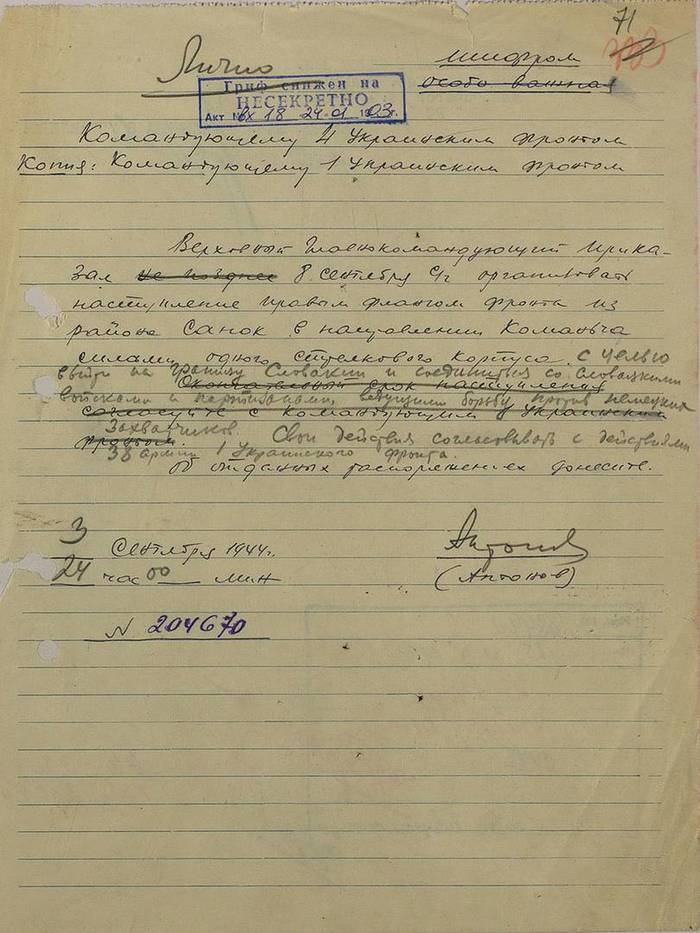 71
Лично
шифром
особо важная
Гриф снижен на
НЕСЕКРЕТНО
Акт № вх 18 24-01 2003г.
Командующему 4 Украинским фронтом
Копия: Командующему 1 Украинским фронтом
Верховный Главнокомандующий прика-
зал не позднее 8 сентября с/г организовать
наступление правым флангом фронта из
района Санок в направлении Команьча
силами одного стрелкового корпуса с целью
выйти на границу Словакии и соединиться со словацкими
Окончательный срок наступления
войсками и партизанами, ведущими борьбу против немецких
согласуйте с командующим 1 Украинским
захватчиков. Свои действия согласовывать с действиями
фронтом.
38 армии 1 Украинского фронта.
Об отданных распоряжениях донесите.
3 сентября 1944г.
24 час 00 мин
Антонов
(Антонов)
N 204670